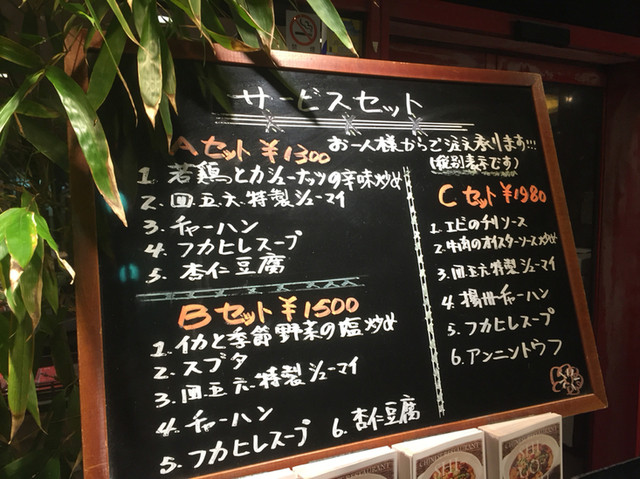 サービスセット
お一人様からご注文承ります!!!
(税別表示です)
Aセット ¥1300
1. 若鶏とカシューナッツの辛味炒め
2. 四五六特製シューマイ
3. チャーハン
4. フカヒレスープ
5. 杏仁豆腐
Bセット ¥1500
1. イカと季節野菜の塩炒め
2. スブタ
3. 四五六特製シューマイ
4. チャーハン
5. フカヒレスープ 6. 杏仁豆腐
Cセット ¥1980
1. エビのチリソース
2. 牛肉のオイスターソース炒め
3. 四五六特製シューマイ
4. 揚州チャーハン
5. フカヒレスープ
6. アンニントウフ